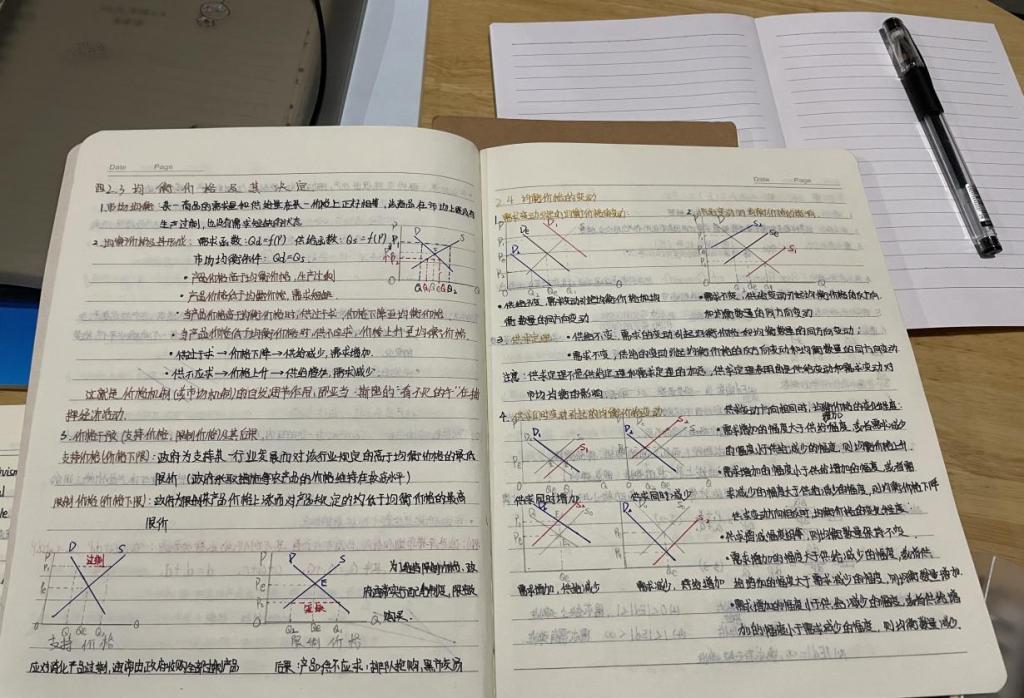 Date Page
2.3 均衡价格及其决定
1.市场均衡:某一商品的需求量和供给量在某一价格上正好相等,此商品在市场上既没有
生产过剩,也没有需求短缺的状态
2.均衡价格及其形成:需求函数:Qd=f(P) 供给函数:Qs=f(P)
市场均衡条件:Qd=Qs
•产品价格高于均衡价格,生产过剩
•产品价格低于均衡价格,需求短缺.
•当产品价格高于均衡价格时,供过于求,价格下降至均衡价格
•当产品价格低于均衡价格时,供不应求,价格上升至均衡价格.
•供过于求→价格下降→供给减少,需求增加.
•供不应求→价格上升→供给增加,需求减少.
这就是价格机制(或市场机制)的自发调节作用,即亚当·斯密的"看不见的手"在指
挥经济活动.
3.价格干预(支持价格,限制价格)及其后果.
支持价格(价格下限):政府为支持某一行业发展而对该行业规定的高于均衡价格的最低
限价(政府采取措施将农产品的价格维持在较高水平)
限制价格(价格下限):政府为限制某产品价格上涨而对产品规定的均低于均衡价格的最高
限价
D S
过剩
P
Q₁ Qe Q₂ Q
支持价格
D S
P
Pe E
短缺
Q₂ Qe Q₁ Q
限制价格
购买.
后果:产品供不应求,排队抢购,黑市交易
Date Page
2.4 均衡价格的变动
1.需求变动引起的均衡价格的变动:
•供给不变,需求变动引起均衡价格和均
衡数量的同方向变动
•需求不变,供给变动引起均衡价格的反方向
和均衡数量的同方向变动
3.供求定理 •供给不变,需求的变动引起均衡价格和均衡数量的同方向变动;
•需求不变,供给的变动引起均衡价格的反方向变动和均衡数量的同方向变动
注意:供求定理不是供给定理和需求定理的加总,供求定理表明的是供给变动和需求变动对
市场均衡的影响
4.供求同时变动引起的均衡价格变动
供求同时增加 供求同时减少
需求增加,供给减少 需求减少,供给增加
供求变动方向相同时,均衡价格的变化程度:
•需求增加的幅度大于供给增加的幅度,或者需求减少
的幅度小于供给减少的幅度,则均衡价格上升.
•需求增加的幅度小于供给增加的幅度,或者需
求减少的幅度大于供给减少的幅度,则均衡价格下降
供求变动方向相反时,均衡价格的变化程度:
•供求增减幅度相等,则均衡数量保持不变.
•需求增加的幅度大于供给减少的幅度,或者供
给增加的幅度大于需求减少的幅度,则均衡数量增加.
•需求增加的幅度小于供给减少的幅度,或者供给增
加的幅度小于需求减少的幅度,则均衡数量减少.